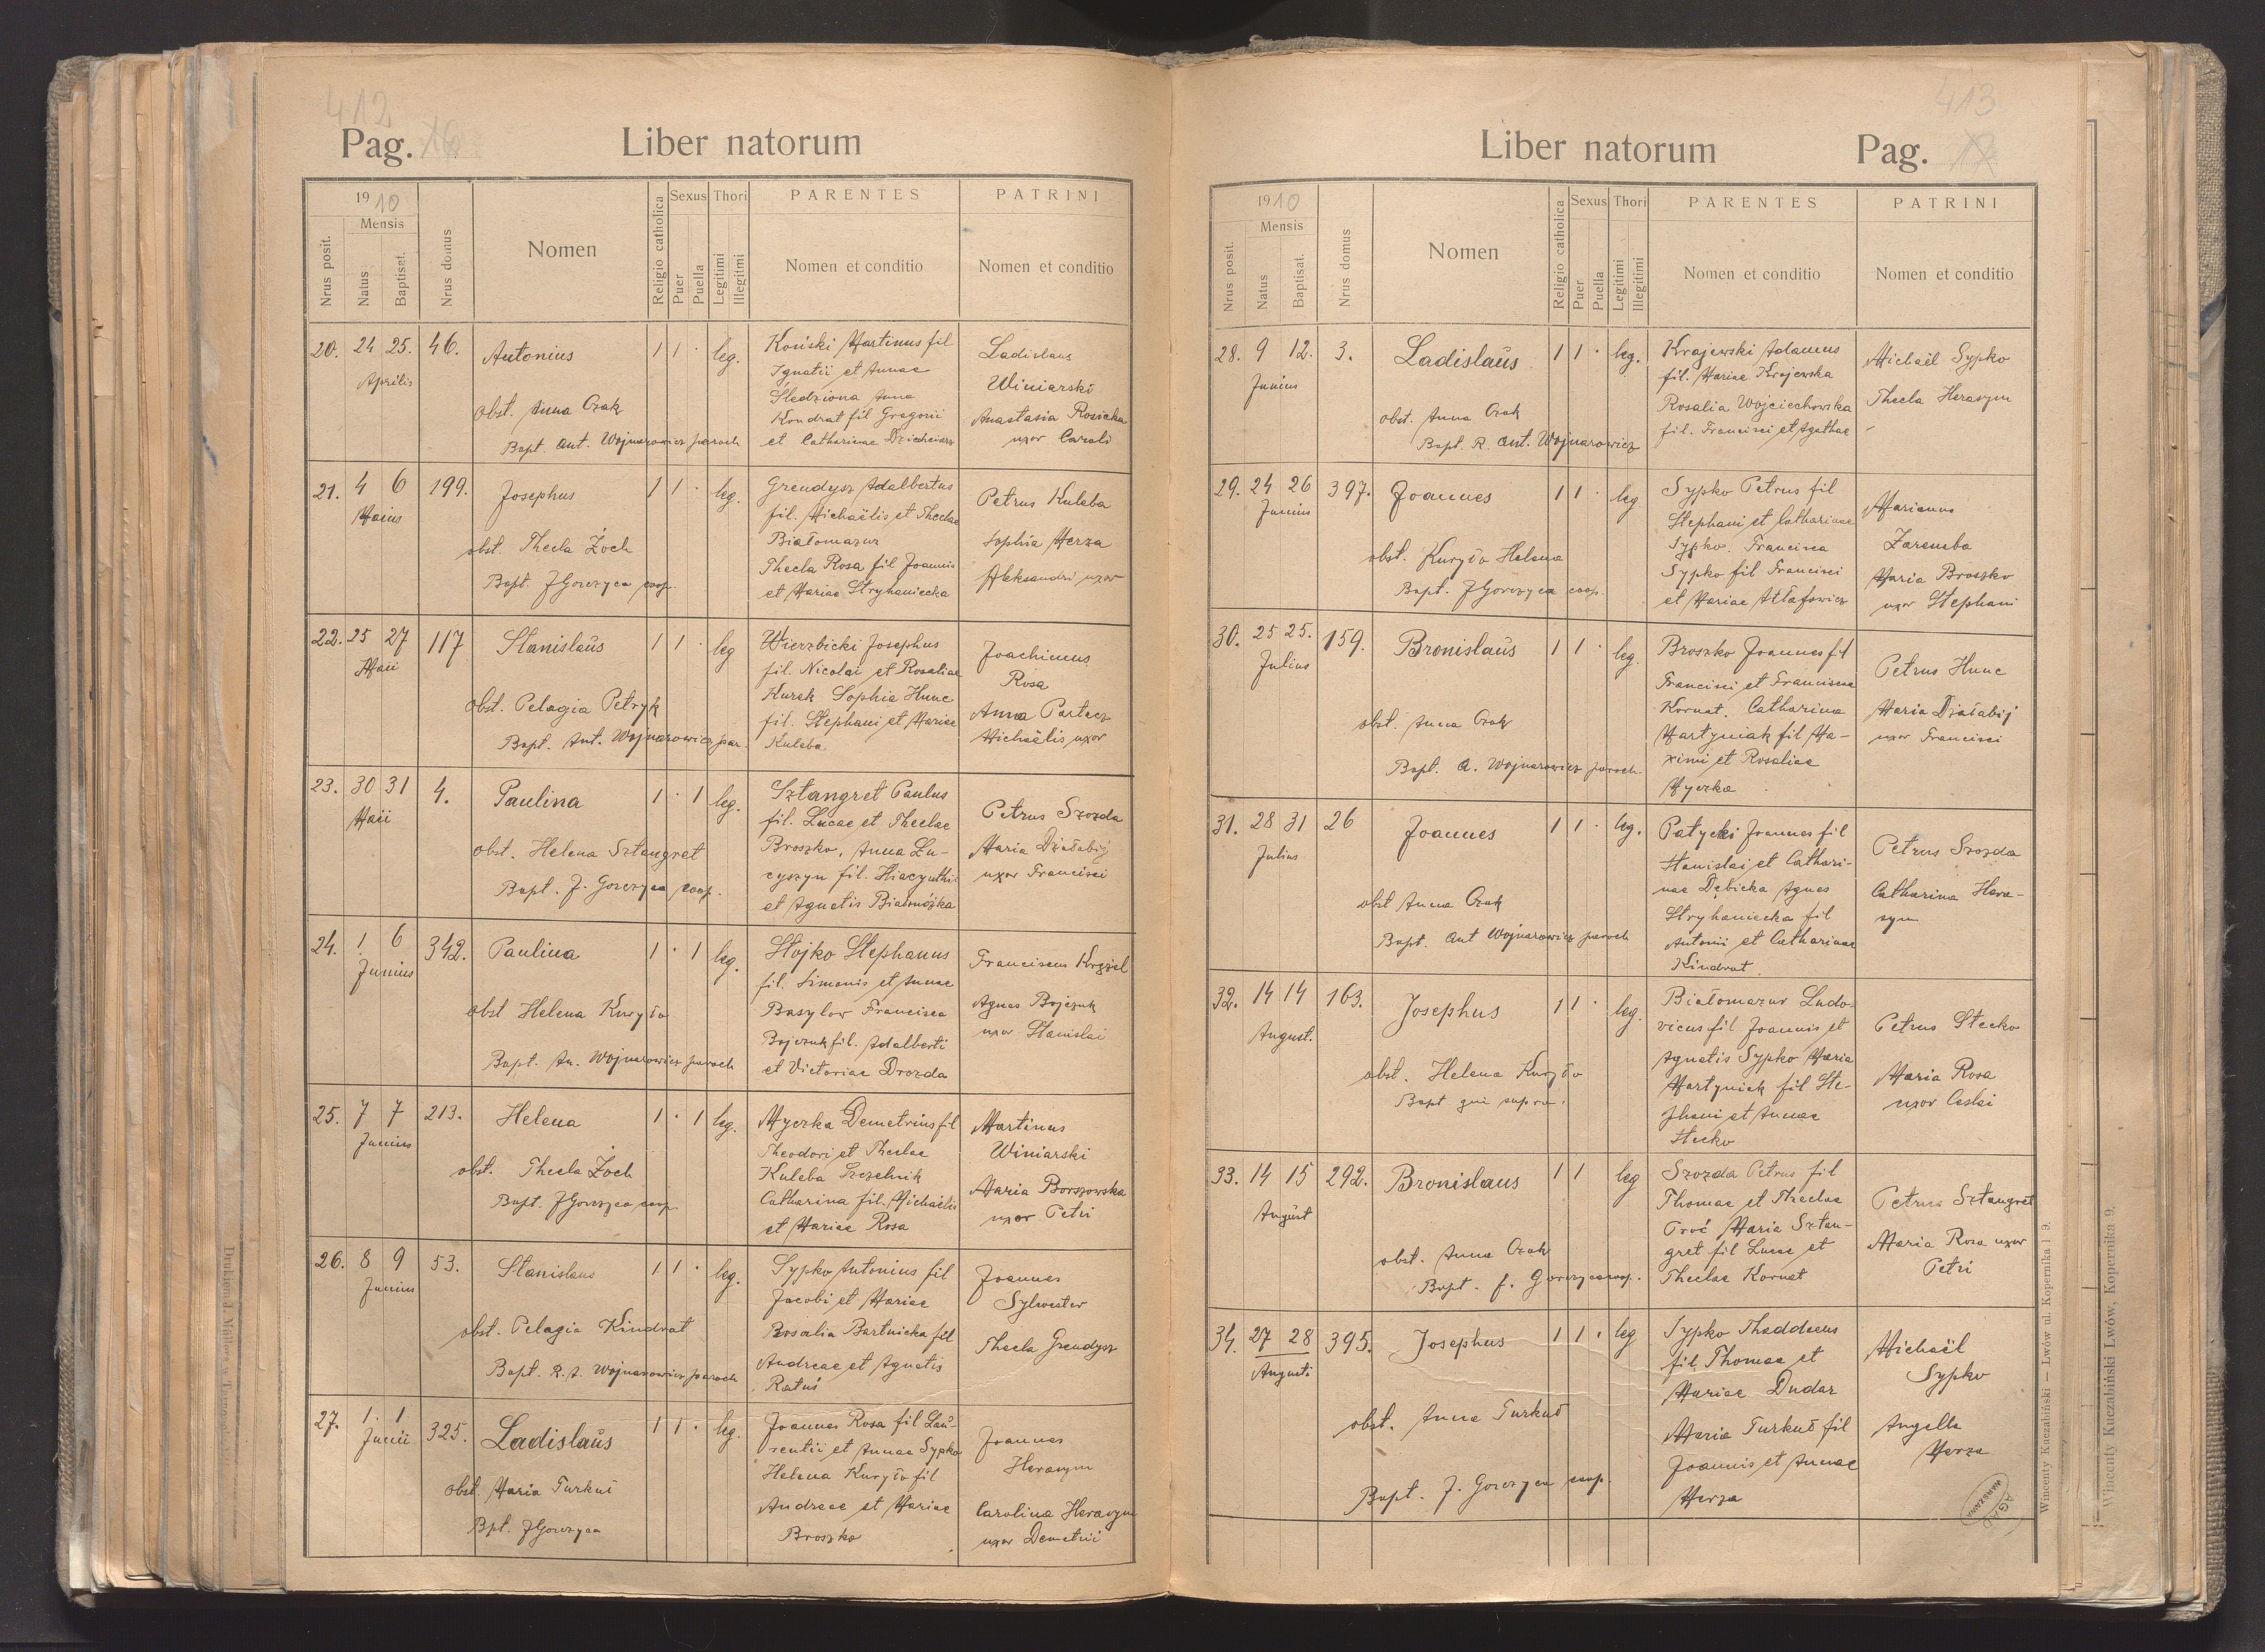 412
Pag. 16
Liber natorum
1910
Mensis
Nrus posit.
Natus
Baptisat.
Nrus domus
Nomen
Religio catholica
Sexus
Puer
Puella
Thori
Legitimi
Illegitmi
PARENTES
Nomen et conditio
PATRINI
Nomen et conditio
20. 24 25. 46. Antonius 1 1 · leg.
Aprilis
obst. Anna Czak
Bapt. Ant. Wojnarowicz paroch
Koński Martinus fil
Ignatii et Annae
Śledziona Anna
Kondrat fil Gregorii
et Catharinae
Ladislaus
Winiarski
Anastasia Rosicka
uxor Caroli
21. 4 6 199. Josephus 1 1 · leg.
Maius
obst. Thecla Żoch
Bapt. J Gorczyca coop.
Grendysz Adalbertus
fil. Michaëlis et Theclae
Białomazur
Thecla Rosa fil Joannis
et Mariae Stryhaniecka
Petrus Kuleba
Sophia Merza
Aleksandri uxor
22. 25 27 117 Stanislaŭs 1 1 · leg
Maii
obst. Pelagia Petryk
Bapt. Ant. Wojnarowicz par.
Wierzbicki Josephus
fil. Nicolai et Rosaliae
Kurek Sophia Hunc
fil. Stephani et Mariae
Kuleba
Joachimus
Rosa
Anna Partecz
Michaëlis uxor
23. 30 31 4. Paulina 1 · 1 leg.
Maii
obst. Helena Sztangret
Bapt. J. Gorczyca coop.
Sztangret Paulus
fil. Lucae et Theclae
Broszko, Anna Lu-
cyszyn fil. Hiacynthi
et Agnetis Białomózka
Petrus Szozda
Maria Działabij
uxor Francisci
24. 1 6 342. Paulina 1 · 1 leg.
Junius
obst Helena Kuryło
Bapt. An. Wojnarowicz paroch
Stojko Stephanus
fil. Simonis et Annae
Basylow Francisca
Bojczuk fil. Adalberti
et Victoriae Drozda
Franciscus
Agnes Bojczuk
uxor Stanislai
25. 7 7 213. Helena 1 · 1 leg.
Junius
obst. Thecla Żoch
Bapt. J Gorczyca coop.
Myczka Demetrius fil
Theodori et Theclae
Kuleba Szczelnik
Catharina fil. Michaëlis
et Mariae Rosa
Martinus
Winiarski
Maria Borszowska
uxor Petri
26. 8 9 53. Stanislaus 1 1 · leg.
Junius
obst. Pelagia Kindrat
Bapt. R. A. Wojnarowicz paroch
Sypko Antonius fil
Jacobi et Mariae
Rosalia Bartnicka fil
Andreae et Agnetis
Ratuś
Joannes
Sylwester
Thecla Grendysz
27. 1. 1 325. Ladislaŭs 1 1 · leg.
Junii
obst. Maria Turkuł
Bpt. J Gorczyca
Joannes Rosa fil Lau-
rentii et Annae Sypko
Helena Kuryło fil
Andreae et Mariae
Broszko
Joannes
Herasym
Carolina Herasym
uxor Demetrii
413
Liber natorum
Pag. 17
1910
Mensis
Nrus posit.
Natus
Baptisat.
Nrus domus
Nomen
Religio catholica
Sexus
Puer
Puella
Thori
Legitimi
Illegitimi
PARENTES
Nomen et conditio
PATRINI
Nomen et conditio
28. 9 12. 3. Ladislaŭs 1 1 · leg.
Junius
obst. Anna Czak
Bapt. R. Ant. Wojnarowicz
Krajewski Adamus
fil. Mariae Krajewska
Rosalia Wojciechowska
fil. Francisci et Agathae
Michaël Sypko
Thecla Herasym
29. 24 26 397. Joannes 1 1 · leg
Junius
obst. Kuryło Helena
Bapt. J Gorczyca coop.
Sypko Petrus fil
Stephani et Catharinae
Sypko. Francisca
Sypko fil Francisci
et Mariae
Marianus
Zaremba
Maria Broszko
uxor Stephani
30. 25 25. 159. Bronislaŭs 1 1 · leg.
Julius
obst. Anna Czak
Bapt. A. Wojnarowicz paroch
Broszko Joannes fil
Francisci et Franciscae
Kornat. Catharina
Martyniak fil Ma-
ximi et Rosaliae
Myczka
Petrus Hunc
Maria Działabij
uxor Francisci
31. 28 31 26 Joannes 1 1 · leg.
Julius
obst Anna Czak
Bapt. Ant Wojnarowicz paroch
Patycki Joannes fil
Stanislai et Cathari-
nae Dębicka Agnes
Stryhaniecka fil
Antonii et Catharinae
Kindrat
Petrus Szozda
Catharina Hera-
sym
32. 14 14 163. Josephus 1 1 · leg.
August.
obst. Helena Kuryło
Bapt qui supra.
Białomazur Ludo-
vicus fil Joannis et
Agnetis Sypko Maria
Martyniak fil Ste-
phani et Annae
Stecko
Petrus Stecko
Maria Rosa
uxor
33. 14 15 292. Bronislaus 1 1 leg
August
obst. Anna Czak
Bapt. J. Gorczyca coop.
Szozda Petrus fil
Thomae et Theclae
Proć Maria Sztan-
gret fil Lucae et
Theclae Kornat
Petrus Sztangret
Maria Rosa uxor
Petri
34. 27 28 395. Josephus 1 1 · leg
Augusti
obst. Anna Turkuł
Bapt. J. Gorczyca coop.
Sypko Thaddaeus
fil Thomae et
Mariae Dudar
Maria Turkuł fil
Joannis et Annae
Merza
Michaël
Sypko
Angella
Merza
AGAD
WARSZAWA
Wincenty Kuczabiński — Lwów ul. Kopernika l 9.
Wincenty Kuczabiński Lwów, Kopernika 9.